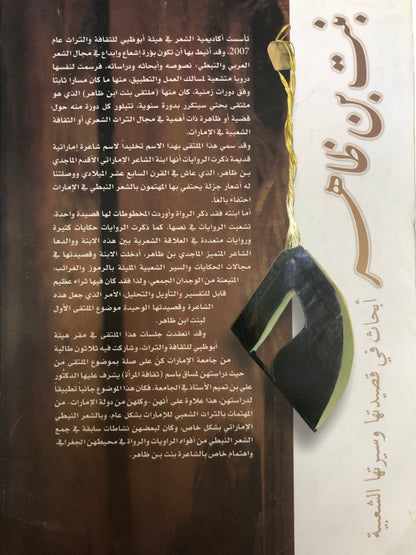 بنت بن ظاهر
أبحاث في قصيدتها وسيرتها الشعبية
تأسست أكاديمية الشعر في هيئة أبوظبي للثقافة والتراث عام
2007، وقد أنيط بها أن تكون بؤرة إشعاع وإبداع في مجال الشعر
العربي والنبطي: نصوصه وأبحاثه ودراساته، فرسمت لنفسها
دروبا متشعبة لمسالك العمل والتطبيق، منها ما كان مسارا ثابتاً
وفق دورات زمنية، كان منها (ملتقى بنت ابن ظاهر) الذي هو
ملتقى بحثي سيتكرر بدورة سنوية، تتبلور كل دورة منه حول:
قضية أو ظاهرة ذات أهمية في مجال التراث الشعري أو الثقافة
الشعبية في الإمارات.
وقد سمي هذا الملتقى بهذا الاسم تخليداً لاسم شاعرة إماراتية
قديمة ذكرت الروايات أنها ابنة الشاعر الإماراتي الأقدم الماجدي
بن ظاهر، الذي عاش في القرن السابع عشر الميلادي ووصلتنا
له أشعار جزلة يحتفي بها المهتمون بالشعر النبطي في الإمارات
احتفاء بالغا.
أما ابنته فقد ذكر الرواة وأوردت المخطوطات لها قصيدة واحدة،
تشعبت الروايات في نصها، كما ذكرت الروايات حكايات كثيرة
وروايات متعددة في العلاقة الشعرية بين هذه الابنة ووالدها
الشاعر المتميز الماجدي بن ظاهر، أدخلت الابنة وقصيدتها في
مجالات الحكايات والسير الشعبية المليئة بالرموز والغرائب،
المنبعثة من الوجدان الجمعي، ولذا فقد كان فيها ثراء عظيم
قابل للتفسير والتأويل والتحليل، الأمر الذي جعل هذه
الشاعرة وقصيدتها الوحيدة موضوع الملتقى الأول
لبنت ابن ظاهر.
وقد انعقدت جلسات هذا الملتقى في مقر هيئة
أبوظبي للثقافة والتراث، وشاركت فيه ثلاثون طالبة
من جامعة الإمارات كنّ على صلة بموضوع الملتقى من
حيث دراستهن لمساق باسم (ثقافة المرأة) يشرف عليها الدكتور
علي بن تميم الأستاذ في الجامعة، فكان هذا الموضوع جانبا تطبيقيا
لدراستهن، علاوة على أنهن -وكلهن من دولة الإمارات- من
المهتمات بالتراث الشعبي للإمارات بشكل عام، وبالشعر النبطي
الإماراتي بشكل خاص، وكان لبعضهن نشاطات سابقة في جمع
الشعر النبطي من أفواه الراويات والرواة في محيطهن الجغرافي،
واهتمام خاص بالشاعرة بنت بن ظاهر.